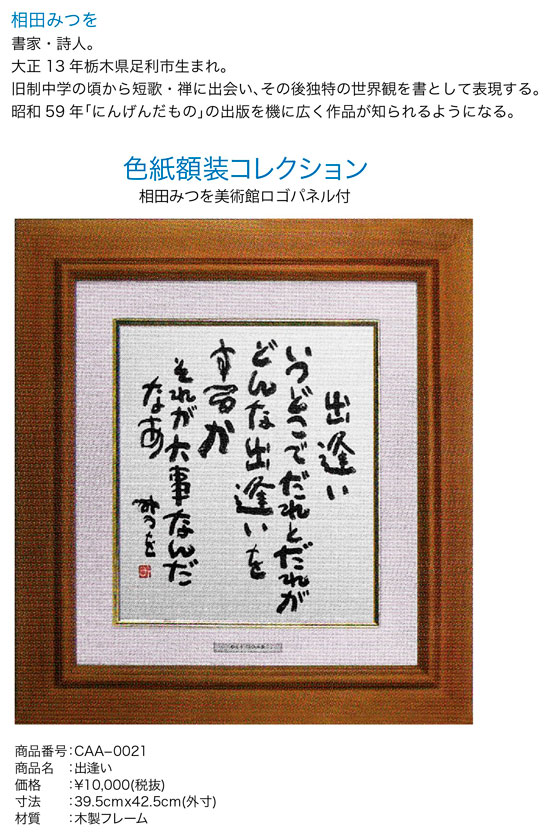 相田みつを
書家・詩人。
大正13年栃木県足利市生まれ。
旧制中学の頃から短歌・禅に出会い、その後独特の世界観を書として表現する。
昭和59年「にんげんだもの」の出版を機に広く作品が知られるようになる。
色紙額装コレクション
相田みつを美術館ロゴパネル付
出逢い
いつどこでだれとだれが
どんな出逢いを
するか
それが大事なんだ
なあ
みつを
商品番号:CAA−0021
商品名 :出逢い
価格 :¥10,000(税抜)
寸法 :39.5cmx42.5cm(外寸)
材質 :木製フレーム